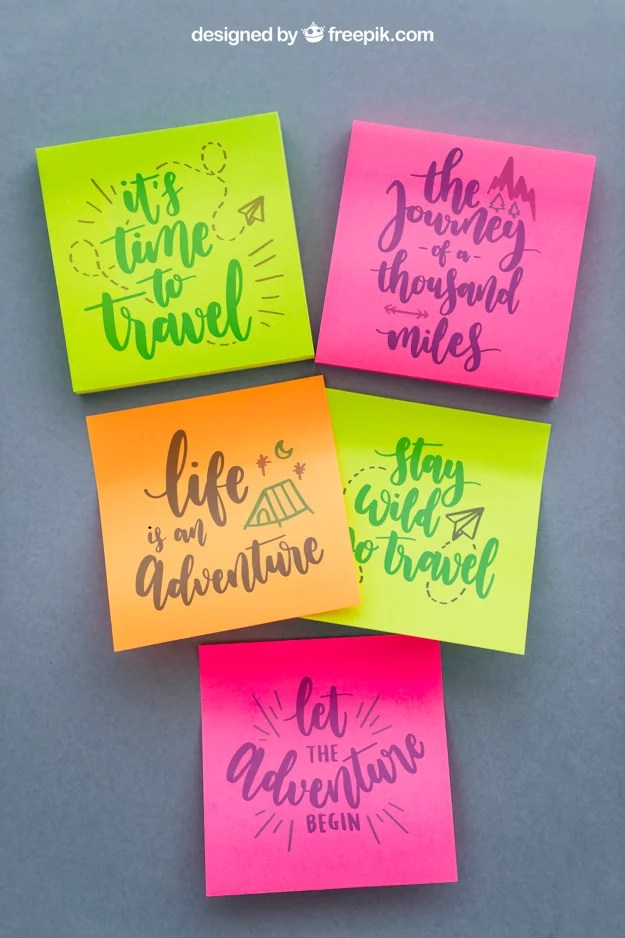 designed by freepik.com
it's
time
to
travel
the
Journey
- of a -
thousand
miles
life
is an
adventure
stay
wild
travel
let
THE
adventure
BEGIN